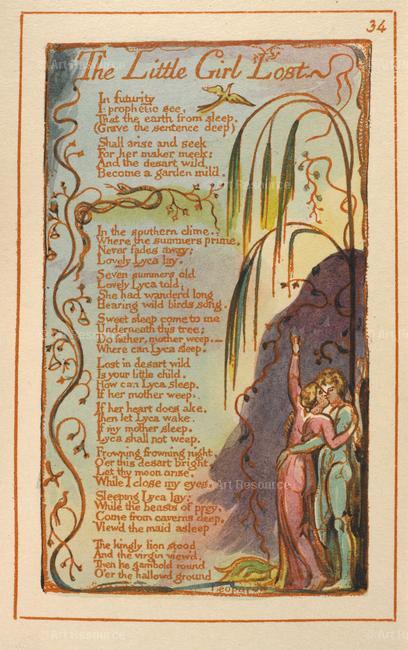 34
The Little Girl Lost
In futurity
I prophetic see,
That the earth from sleep,
(Grave the sentence deep)
Shall arise and seek
For her maker meek:
And the desart wild
Become a garden mild.
In the southern clime,
Where the summers prime,
Never fades away;
Lovely Lyca lay.
Seven summers old
Lovely Lyca told,
She had wanderd long,
Hearing wild birds song.
Sweet sleep come to me
Underneath this tree;
Do father, mother weep.—
Where can Lyca sleep.
Lost in desart wild
Is your little child.
How can Lyca sleep,
If her mother weep.
If her heart does ake,
Then let Lyca wake;
If my mother sleep,
Lyca shall not weep.
Frowning frowning night,
O'er this desart bright,
Let thy moon arise,
While I close my eyes.
Sleeping Lyca lay:
While the beasts of prey,
Come from caverns deep,
View'd the maid asleep
The kingly lion stood
And the virgin view'd,
Then he gambold round
O'er the hallowd ground
Leopards
Art Resource